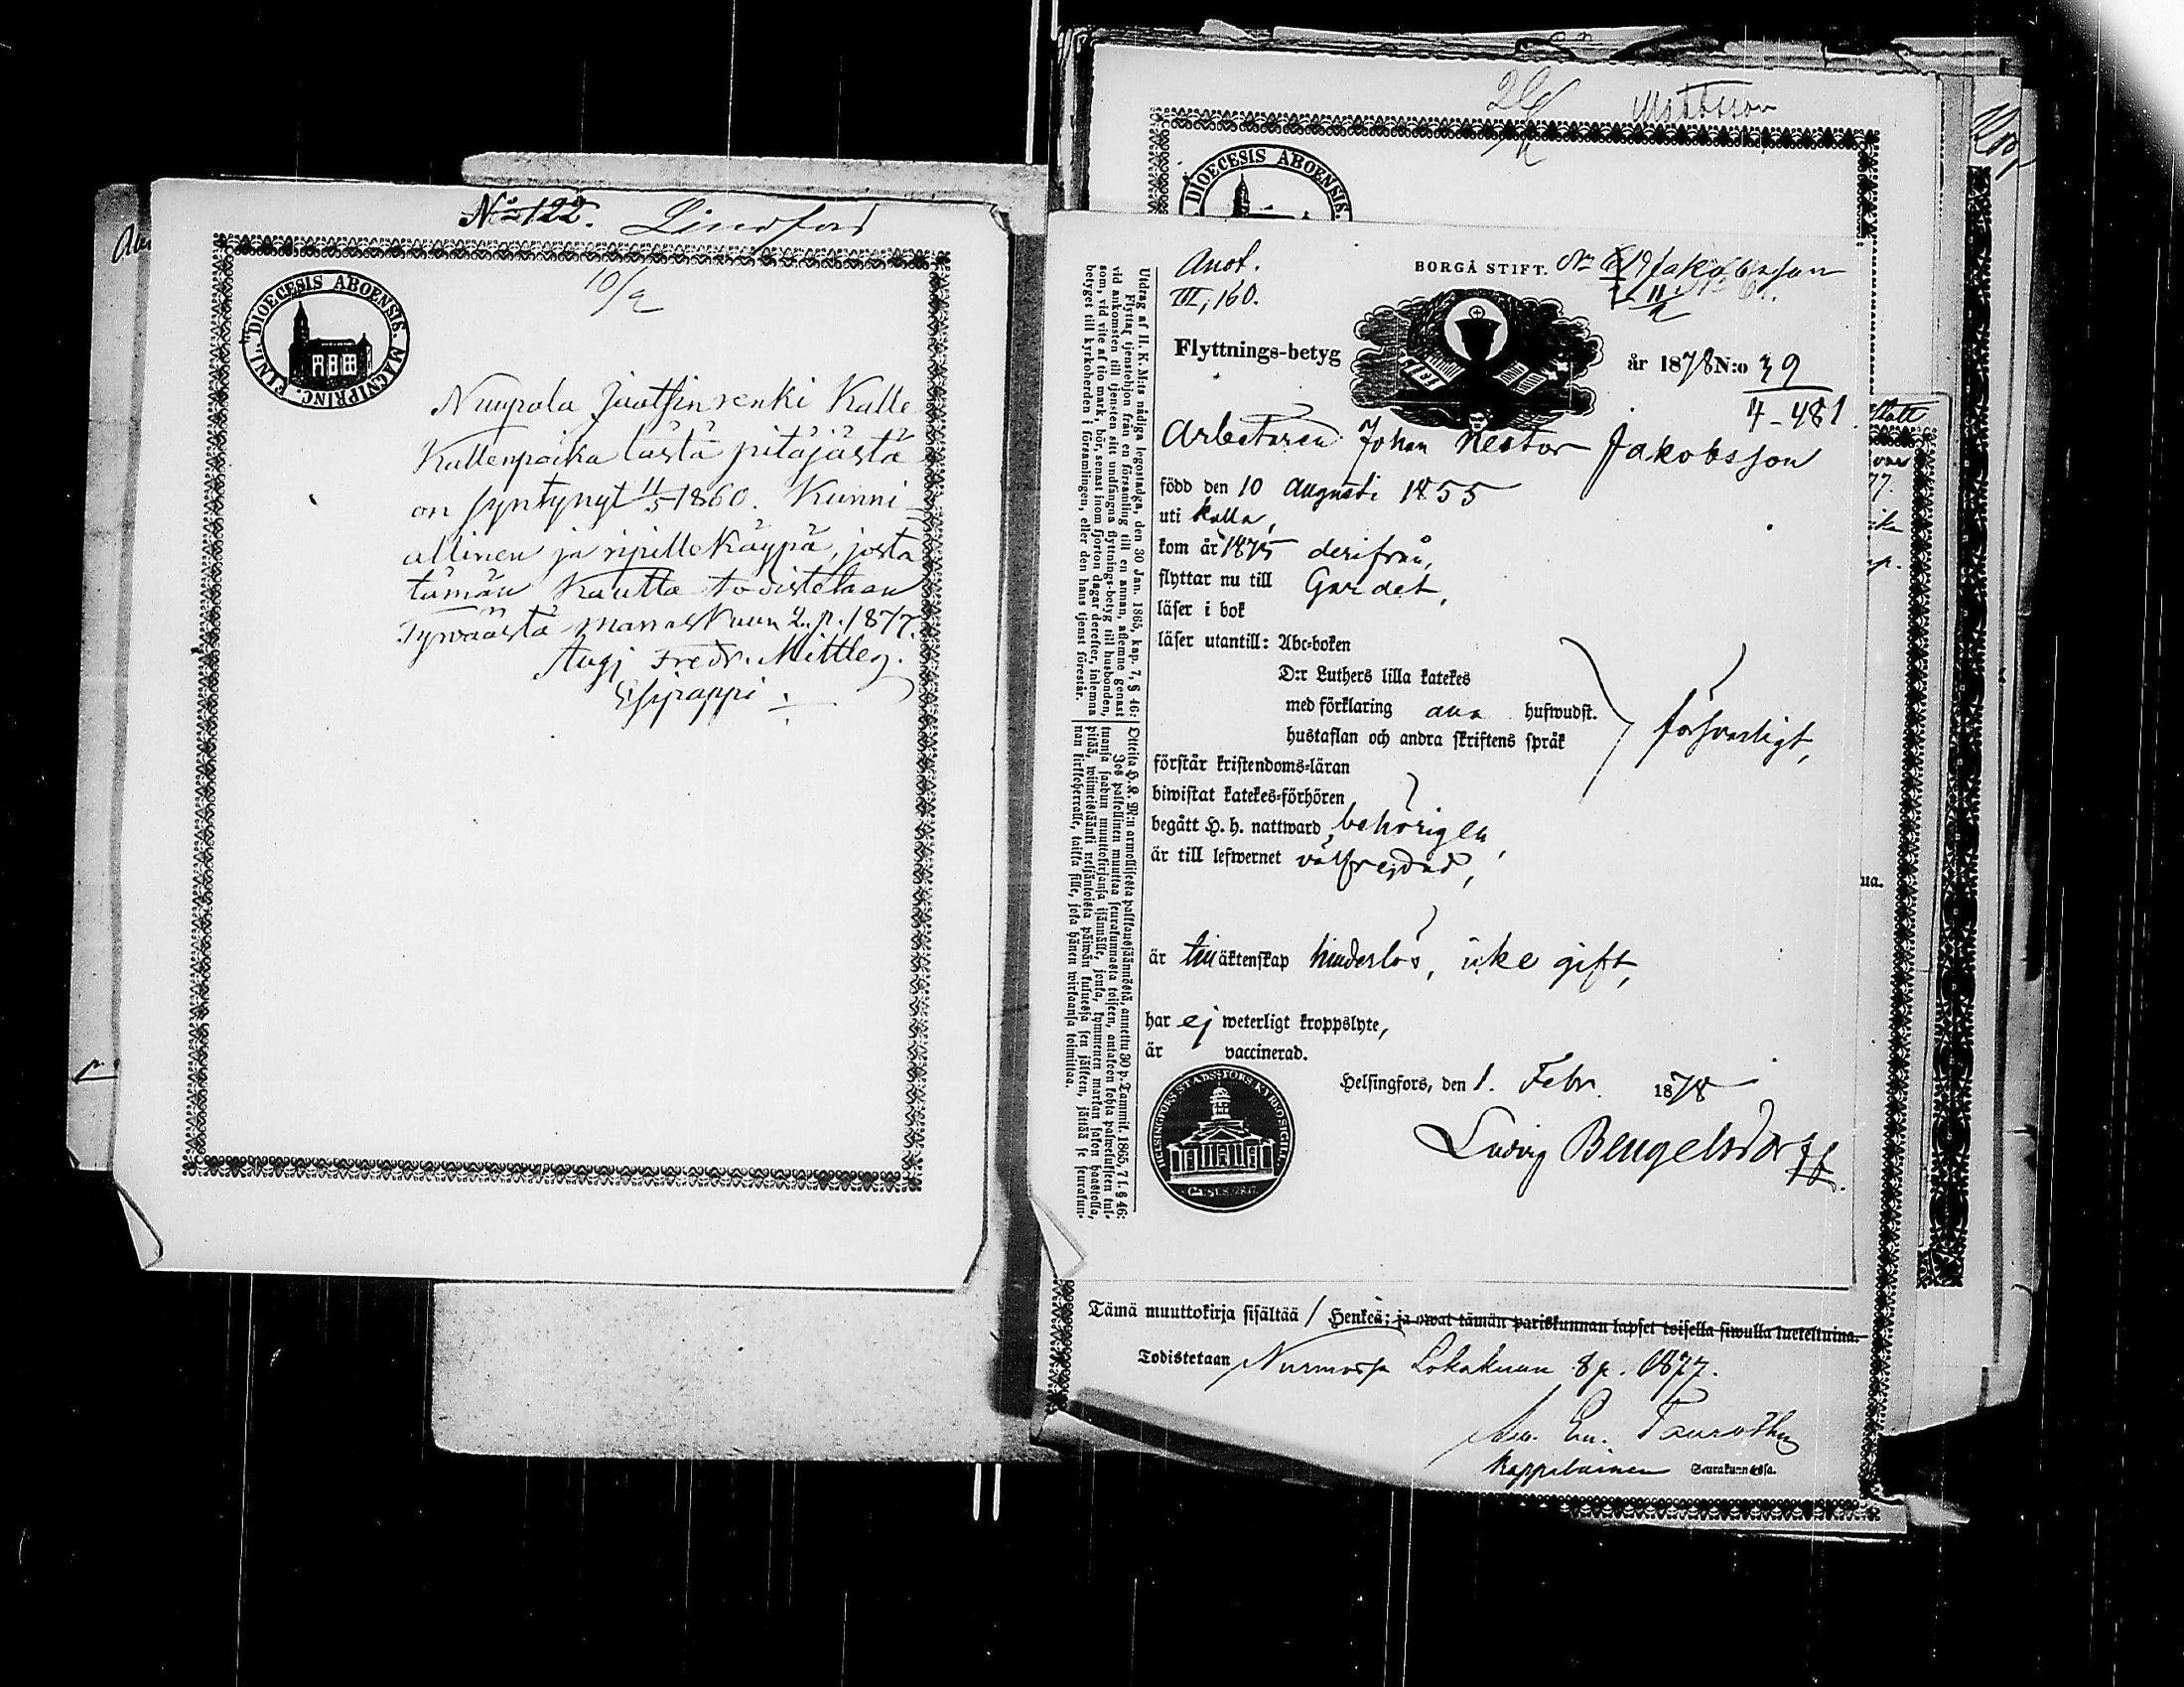 No 122. Lindfors
10/2
DIOECESIS ABOENSIS. MAGNIPRINC. FINL.
Nuupala Juathin renki Kalle
Kallenpoika tästä pitäjästä
on syntynyt 11/5 1860. Kunni-
allinen ja ripillekäypä, josta
tämän kautta todistetaan
Tyrväästä marrask:uun 2. p. 1877.
Fredr. Mittler.
Esipappi
DIOECESIS ABOENSIS.
Anot.
III, 160.
BORGÅ STIFT. No Jakobsson
Flyttnings-betyg
år 1878 N:o 39
4-481
Arbetaren Johan Nestor Jakobsson
född den 10 Augusti 1855
uti Kalla,
kom år 1875 derifrån,
flyttar nu till Gardet,
läser i bok
läser utantill: Abc-boken
D:r Luthers lilla katekes
med förklaring hufwudst.
hustaflan och andra skriftens språk
försvarligt,
förstår kristendoms-läran
biwistat katekes-förhören
begått H. h. nattward behörigen,
är till lefwernet välfrejdad,
är till äktenskap hinderlös, icke gift,
har ej weterligt kroppslyte,
är vaccinerad.
Helsingfors, den 1. Febr. 1878
Ludvig Bengelsdorff.
Utdrag af H. K. M:ts nådiga legostadga, den 30 Jan. 1865, kap. 7, § 46:
Flyttar tjenstehjon från en församling till en annan, aflemne genast
vid ankomsten till tjensten sitt undfångna flyttnings-betyg till husbonden,
som, vid vite af tio mark, bör, senast inom fjorton dagar derefter, inlemna
betyget till kyrkoherden i församlingen, eller den hans tjenst förestår.
Otteita H. K. M:n armollisesta palkkaussäännöstä, annettu 30 p. Tammik. 1865, 7 l. § 46:
Jos palkollinen muuttaa seurakunnasta toiseen, antakoon kohta palwelukseen tul-
tuansa saadun muuttokirjansa isännälle, jonka, kymmenen markan sakon haastolla,
pitää, wiimeistäänki neljäntoista päiwän kuluessa sen jälkeen, jättää se seurakun-
nan kirkkoherralle, taikka sille, joka hänen wirkaansa toimittaa.
Tämä muuttokirja sisältää 1 Henkeä; ja owat tämän pariskunnan lapset toisella siwulla lueteltuina.
Todistetaan Nurmossa Lokakuun 8 p. 1877.
Kappalainen Seurakunnassa.